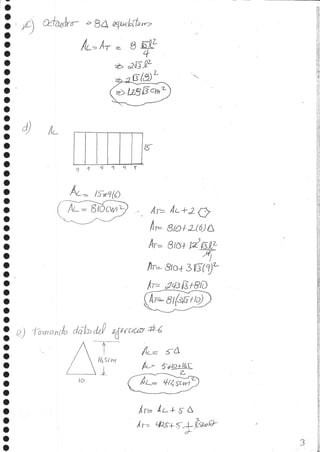 c) Octaedro → 8Δ equiláteros
AL = AT = 8 √3 l²
4
⇒ 2√3 l²
⇒ 2√3(8)²
⇒ 128√3 cm²
d) AL
15
9 9 9 9 9 9
AL = 15×9(6)
AL = 810cm²
AT = AL + 2
AT = 810 + 2(6)Δ
AT = 810 + 12 √3 l²
AT = 810 + 3√3(9)²
AT = 243√3 + 810
AT = 81(3√3 + 10)
e) Tomando dato del ejercicio #6
16,5cm
10
AL = 5Δ
2
AL = 412,5cm²
AT = AL + 5Δ
3